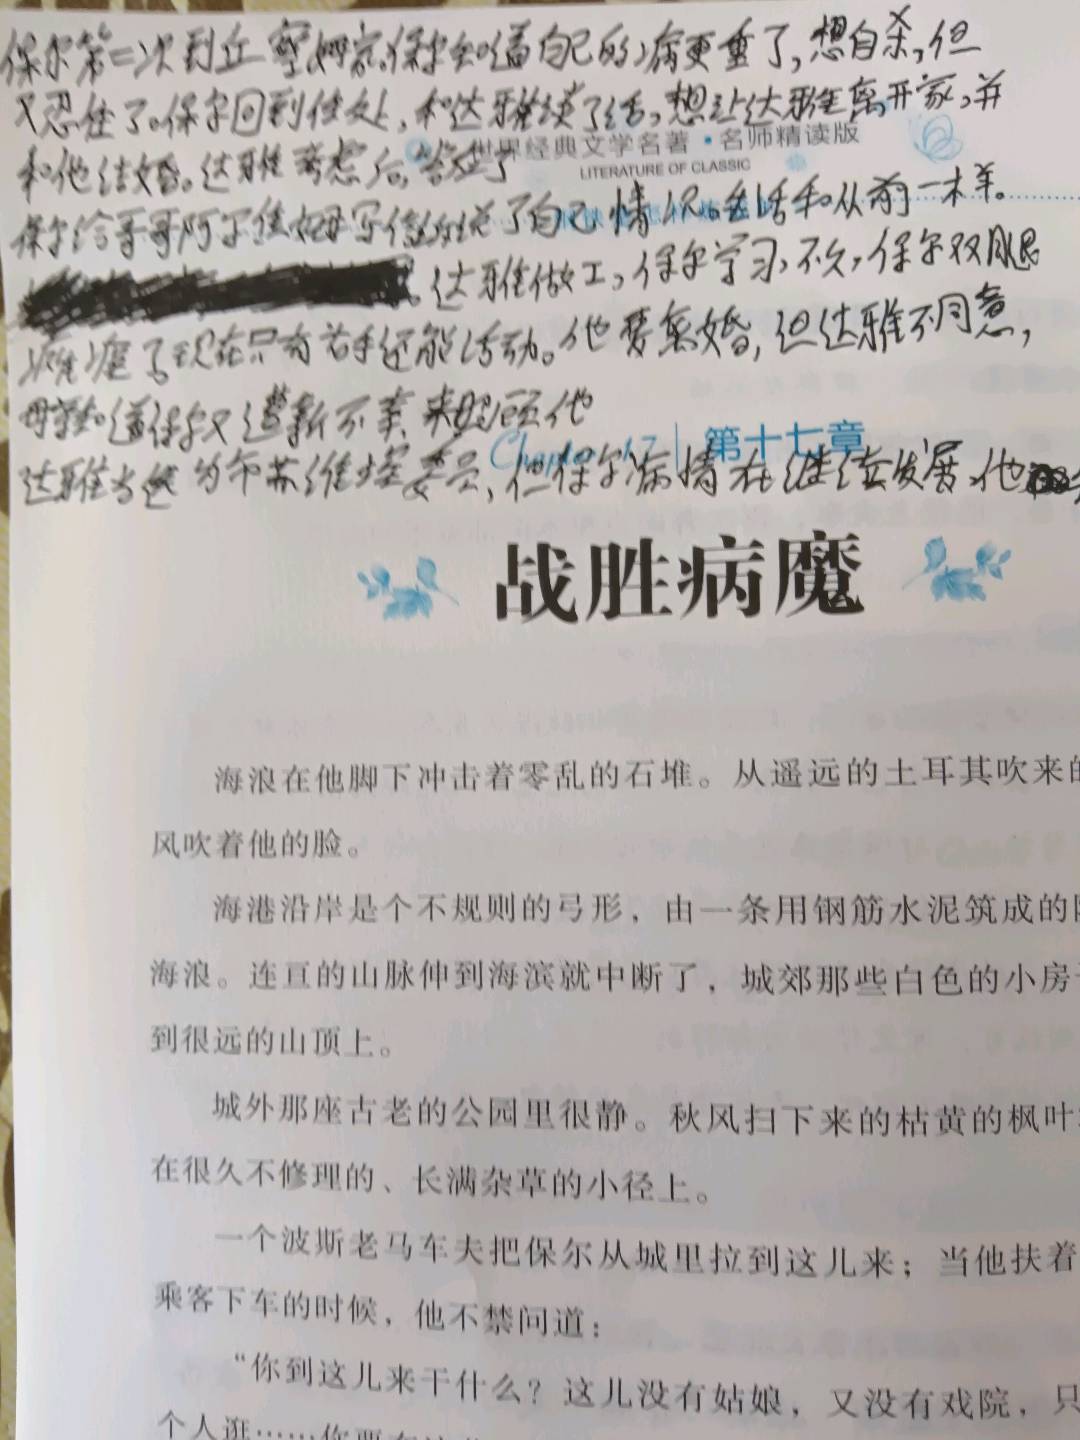 保尔第二次到丘察姆家。保尔知道自己的病更重了,想自杀,但
又忍住了。保尔回到住处,和达雅谈了话,想让达雅离开家,并
世界经典文学名著·名师精读版
LITERATURE OF CLASSIC
和他结婚。达雅考虑后,答应了
保尔给哥哥阿尔焦姆写信说了自己情况。生活和从前一样。
达雅做工,保尔学习,不久,保尔双腿
瘫痪了现在只有右手还能活动。他要离婚,但达雅不同意,
母亲知道保尔又遭新不幸,来照顾他
Chapter 17 | 第十七章
达雅当选为市苏维埃委员,但保尔病情在继续发展,他
战胜病魔
海浪在他脚下冲击着零乱的石堆。从遥远的土耳其吹来的
风吹着他的脸。
海港沿岸是个不规则的弓形,由一条用钢筋水泥筑成的
海浪。连亘的山脉伸到海滨就中断了,城郊那些白色的小房
到很远的山顶上。
城外那座古老的公园里很静。秋风扫下来的枯黄的枫叶
在很久不修理的、长满杂草的小径上。
一个波斯老马车夫把保尔从城里拉到这儿来;当他扶着
乘客下车的时候,他不禁问道:
“你到这儿来干什么?这儿没有姑娘,又没有戏院,只
个人逛……你要